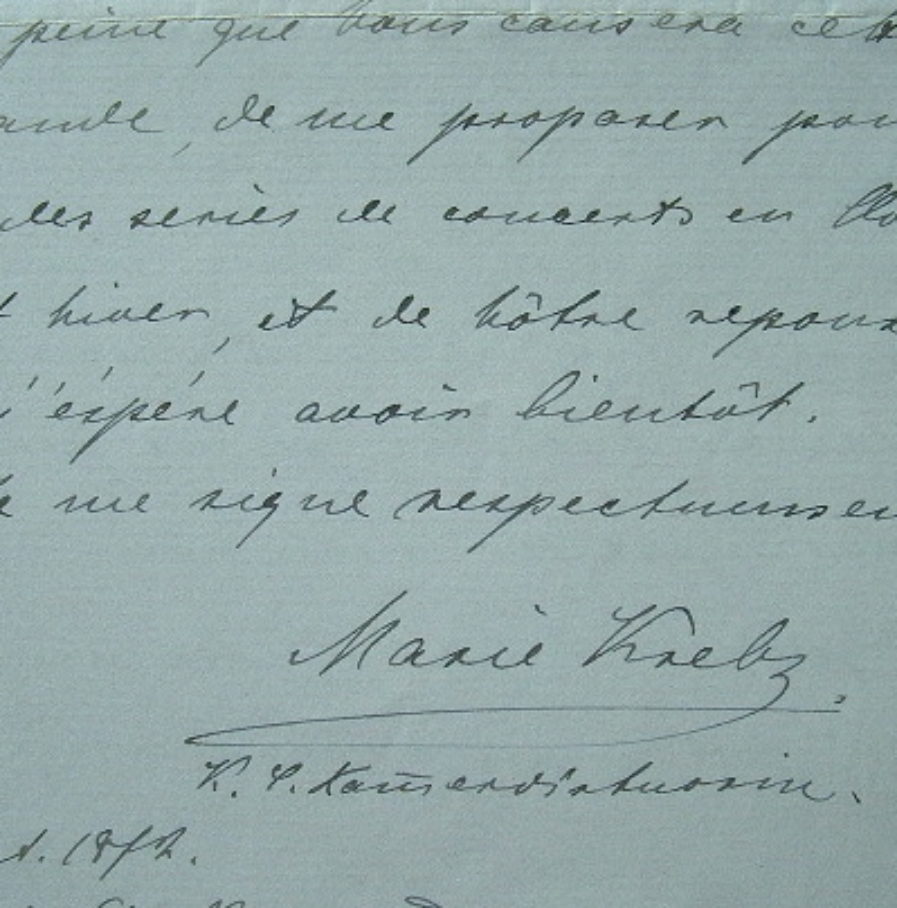 peine que vous causera cet
ande, de me proposer pou
des series de concerts en Ho
t hiver, et de vôtre repons
j'éspére avoir bientôt.
me signe respectueusem
Marie Krebs.
K. S. Kam̄ervirtuosin.
t. 1872.